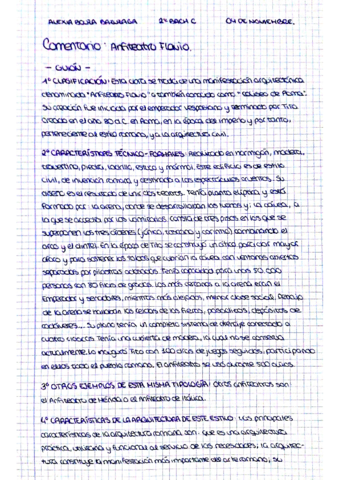 ALEXIA BOIRA BARIAGA 2º BACH C 04 DE NOVIEMBRE.
Comentario: Anfiteatro Flavio.
- GUIÓN -
1º CLASIFICACIÓN: Esta obra se trata de una manifestación arquitectónica
denominada "Anfiteatro Flavio" o también conocido como "Coliseo de Roma".
Su creación fue iniciada por el emperador Vespasiano y terminado por Tito
creado en el año 80 d.C. en Roma, en la época del imperio y por tanto,
perteneciente al estilo romano, y a la arquitectura civil.
2º CARACTERÍSTICAS TÉCNICO-FORMALES: Realizado en hormigón, madera,
travertino, piedra, ladrillo, estuco y mármol. Este edificio es de estilo
civil, de invención romana, y destinado a los espectáculos cruentos. Su
diseño es el resultado de unir dos teatros. Tenía planta elíptica y está
formado por: la arena, donde se desarrollaban los juegos y la cávea, a
la que se accedía por los vomitorios. Consta de tres pisos en los que se
superponen los tres órdenes (jónico, toscano y corintio) combinando el
arco y el dintel. En la época de Tito se construyó un ático para dar mayor
aforo y para sostener los toldos que cubrían la cávea con ventanas abiertas
separadas por pilastras adosadas. Tenía capacidad para unas 50.000
personas con 80 filas de gradas. Los más cercanos a la arena eran el
Emperador y senadores, mientras más alejado, menor clase social. Debajo
de la arena se hallaban las jaulas de las fieras, pasadizos, depósitos de
cadáveres... Su plano tenía un completo sistema de drenaje conectado a
cuatro cloacas. Tenía una cubierta de madera, la cual no se conserva
actualmente. Lo inauguró Tito con 100 días de juegos seguidos, participando
en ellos todo el pueblo romano. El anfiteatro se usó durante 500 años.
3º OTROS EJEMPLOS DE ESTA MISMA TIPOLOGÍA: Otros anfiteatros son
el Anfiteatro de Mérida o el Anfiteatro de Itálica.
4º CARACTERÍSTICAS DE LA ARQUITECTURA DE ESTE ESTILO: Las principales
características de la arquitectura romana son: que es una arquitectura
práctica, utilitaria y funcional al servicio de las necesidades; la arquitec-
tura constituye la manifestación más importante del arte romano; su